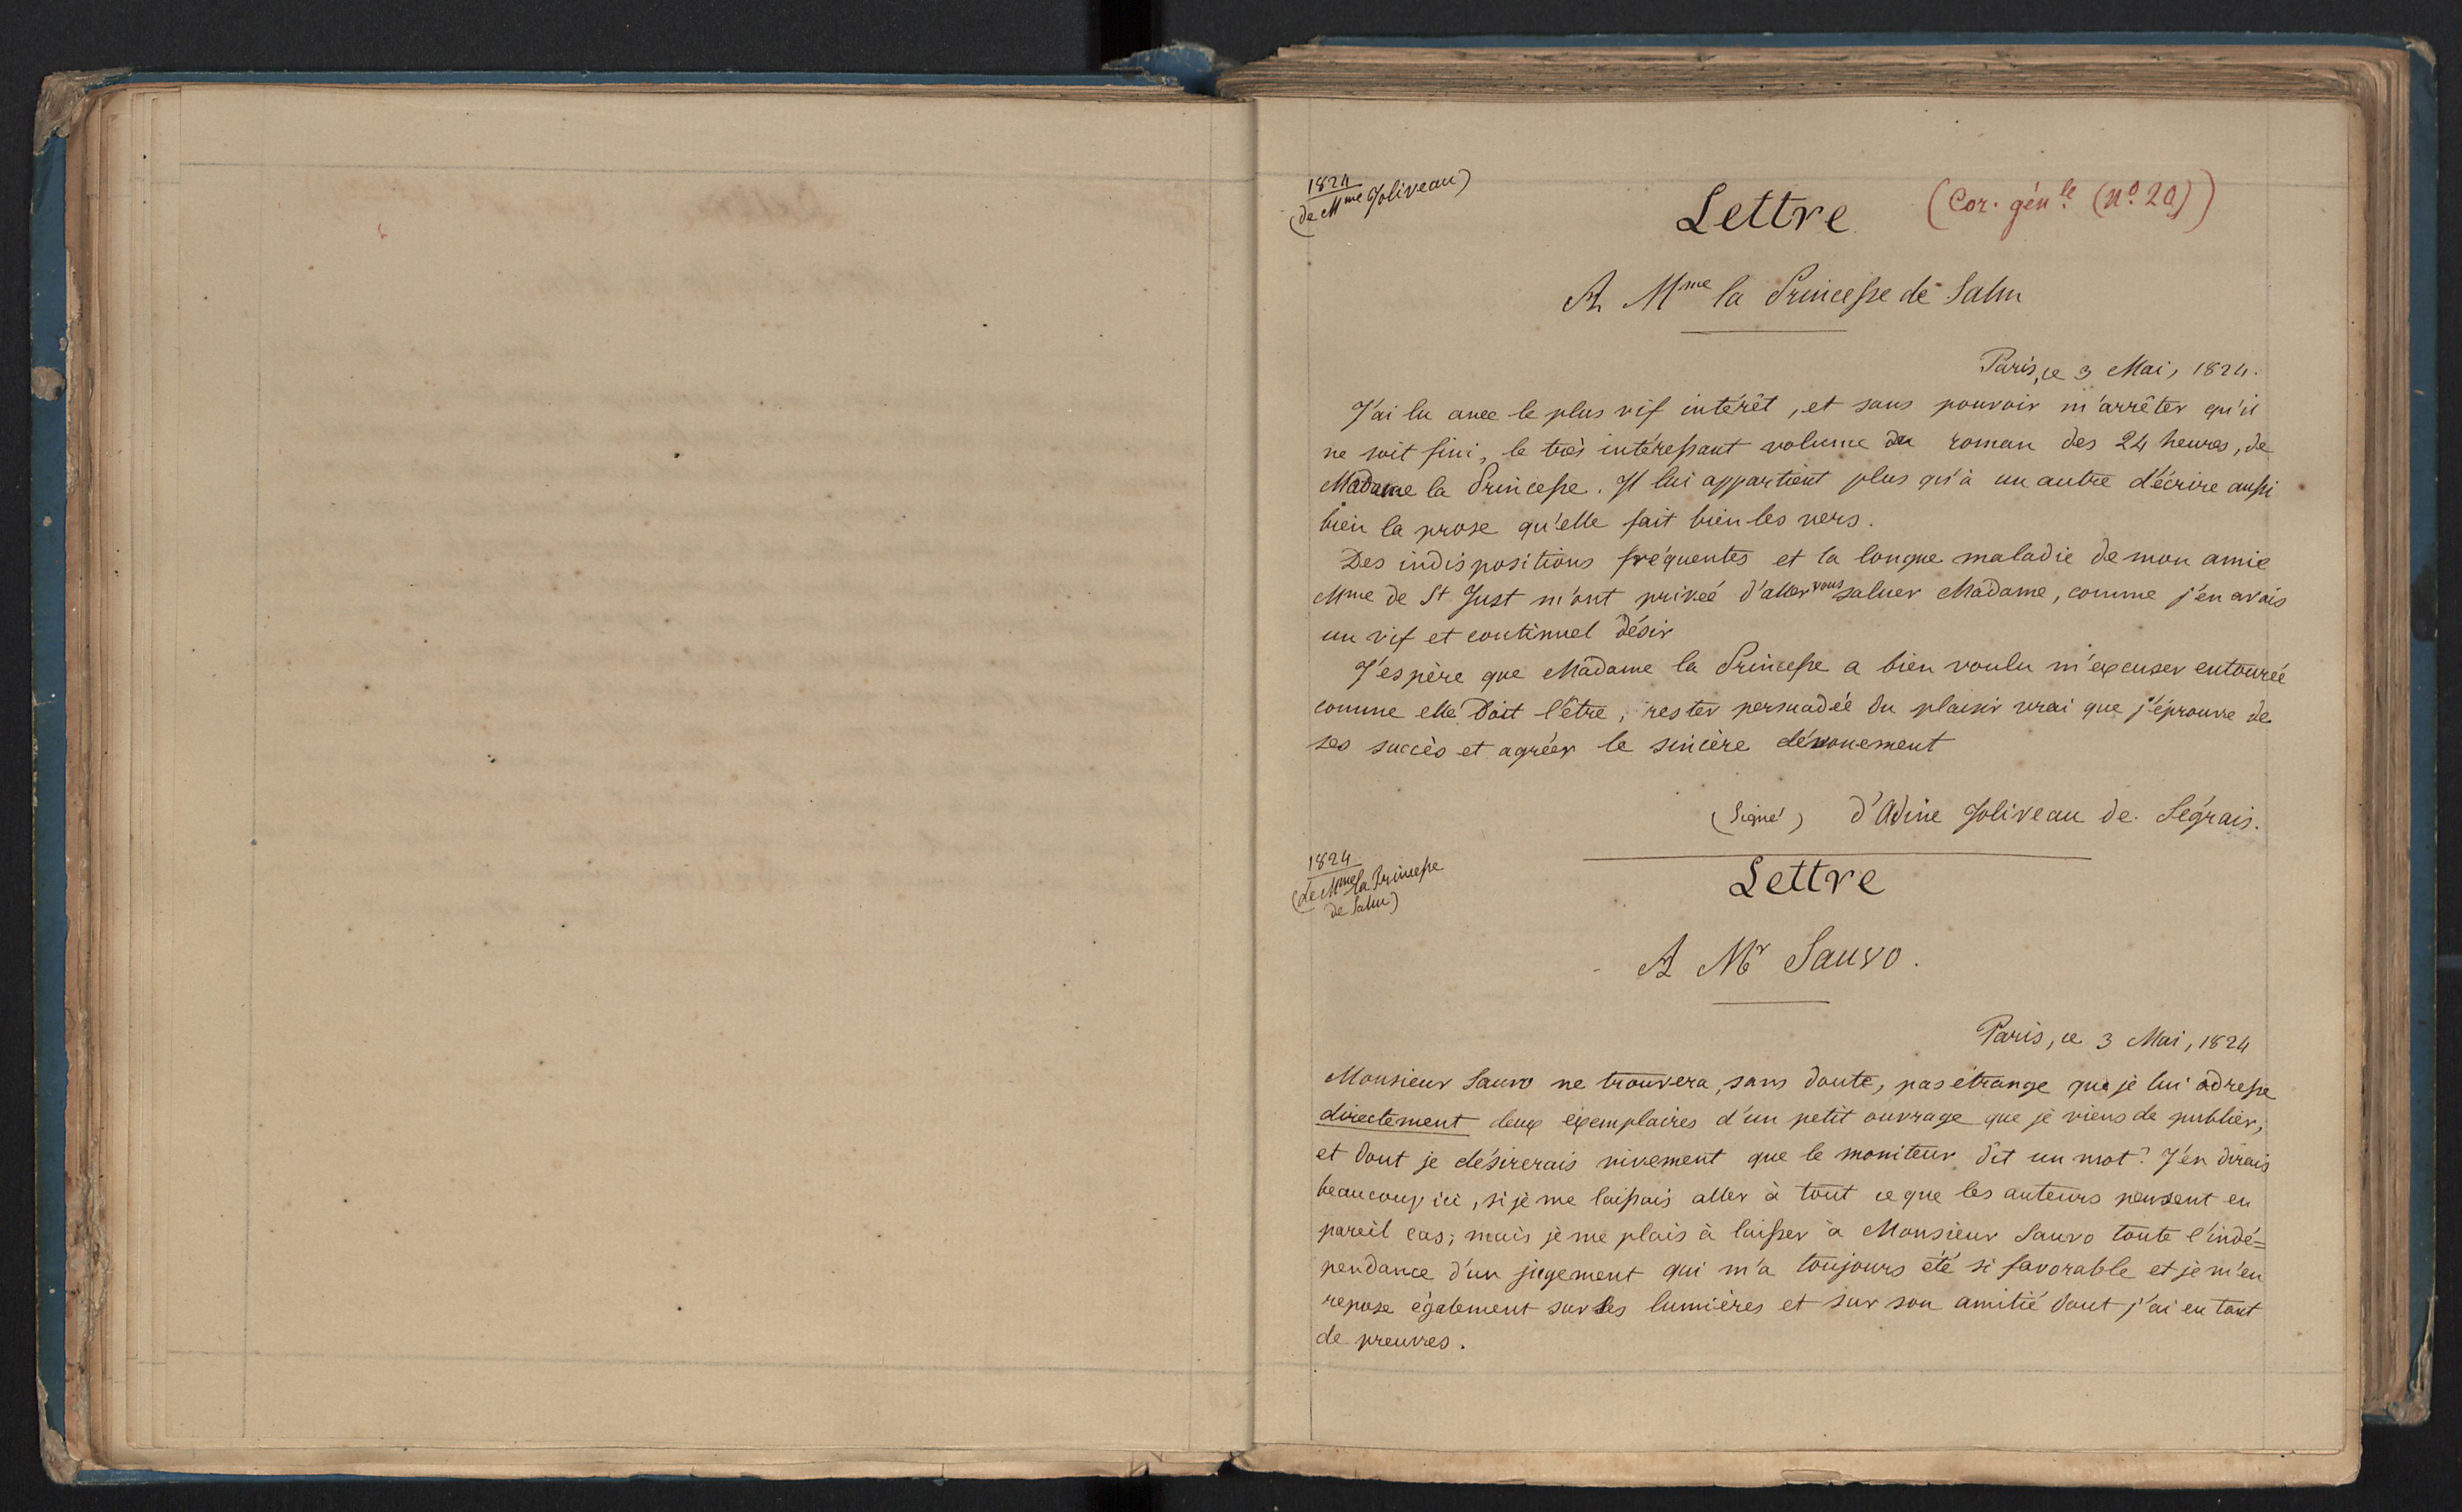 1824
(de Mme Joliveau)
Lettre (Cor. génle (no. 20))
A Mme la Princesse de Salm
Paris, ce 3 Mai, 1824.
J'ai lu avec le plus vif intérêt, et sans pouvoir m'arrêter qu'il
ne soit fini, le très intéressant volume du roman des 24 heures, de
Madame la Princesse. Il lui appartient plus qu'à un autre d'écrire aussi
bien la prose qu'elle fait bien les vers.
Des indispositions fréquentes et la longue maladie de mon amie
Mme de St Just m'ont privée d'aller vous saluer Madame, comme j'en avais
un vif et continuel désir
J'espère que Madame la Princesse a bien voulu m'excuser entourée
comme elle doit l'être, rester persuadée du plaisir vrai que j'éprouve de
ses succès et agréer le sincère dévouement
(Signé) d'Adine Joliveau de Ségrais.
1824
(de Mme la Princesse
de Salm)
Lettre
A Mr Sauvo.
Paris, ce 3 Mai, 1824
Monsieur Sauvo ne trouvera, sans doute, pas etrange que je lui adresse
directement deux exemplaires d'un petit ouvrage que je viens de publier,
et dont je désirerais vivement que le moniteur dit un mot. J'en dirais
beaucoup ici, si je me laissais aller à tout ce que les auteurs pensent en
pareil cas; mais je me plais à laisser à Monsieur Sauvo toute l'indé=
pendance d'un jugement qui m'a toujours été si favorable et je m'en
repose également sur ses lumières et sur son amitié dont j'ai eu tant
de preuves.